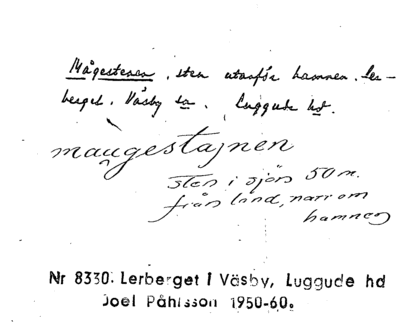 Mågestenen, sten utanför hamnen. Ler-
berget. Väsby sn. Luggude hd.
maugestajnen
sten i sjön 50 m.
från land, narr om
hamnen
Nr 8330. Lerberget i Väsby, Luggude hd
Joel Påhlsson 1950-60.